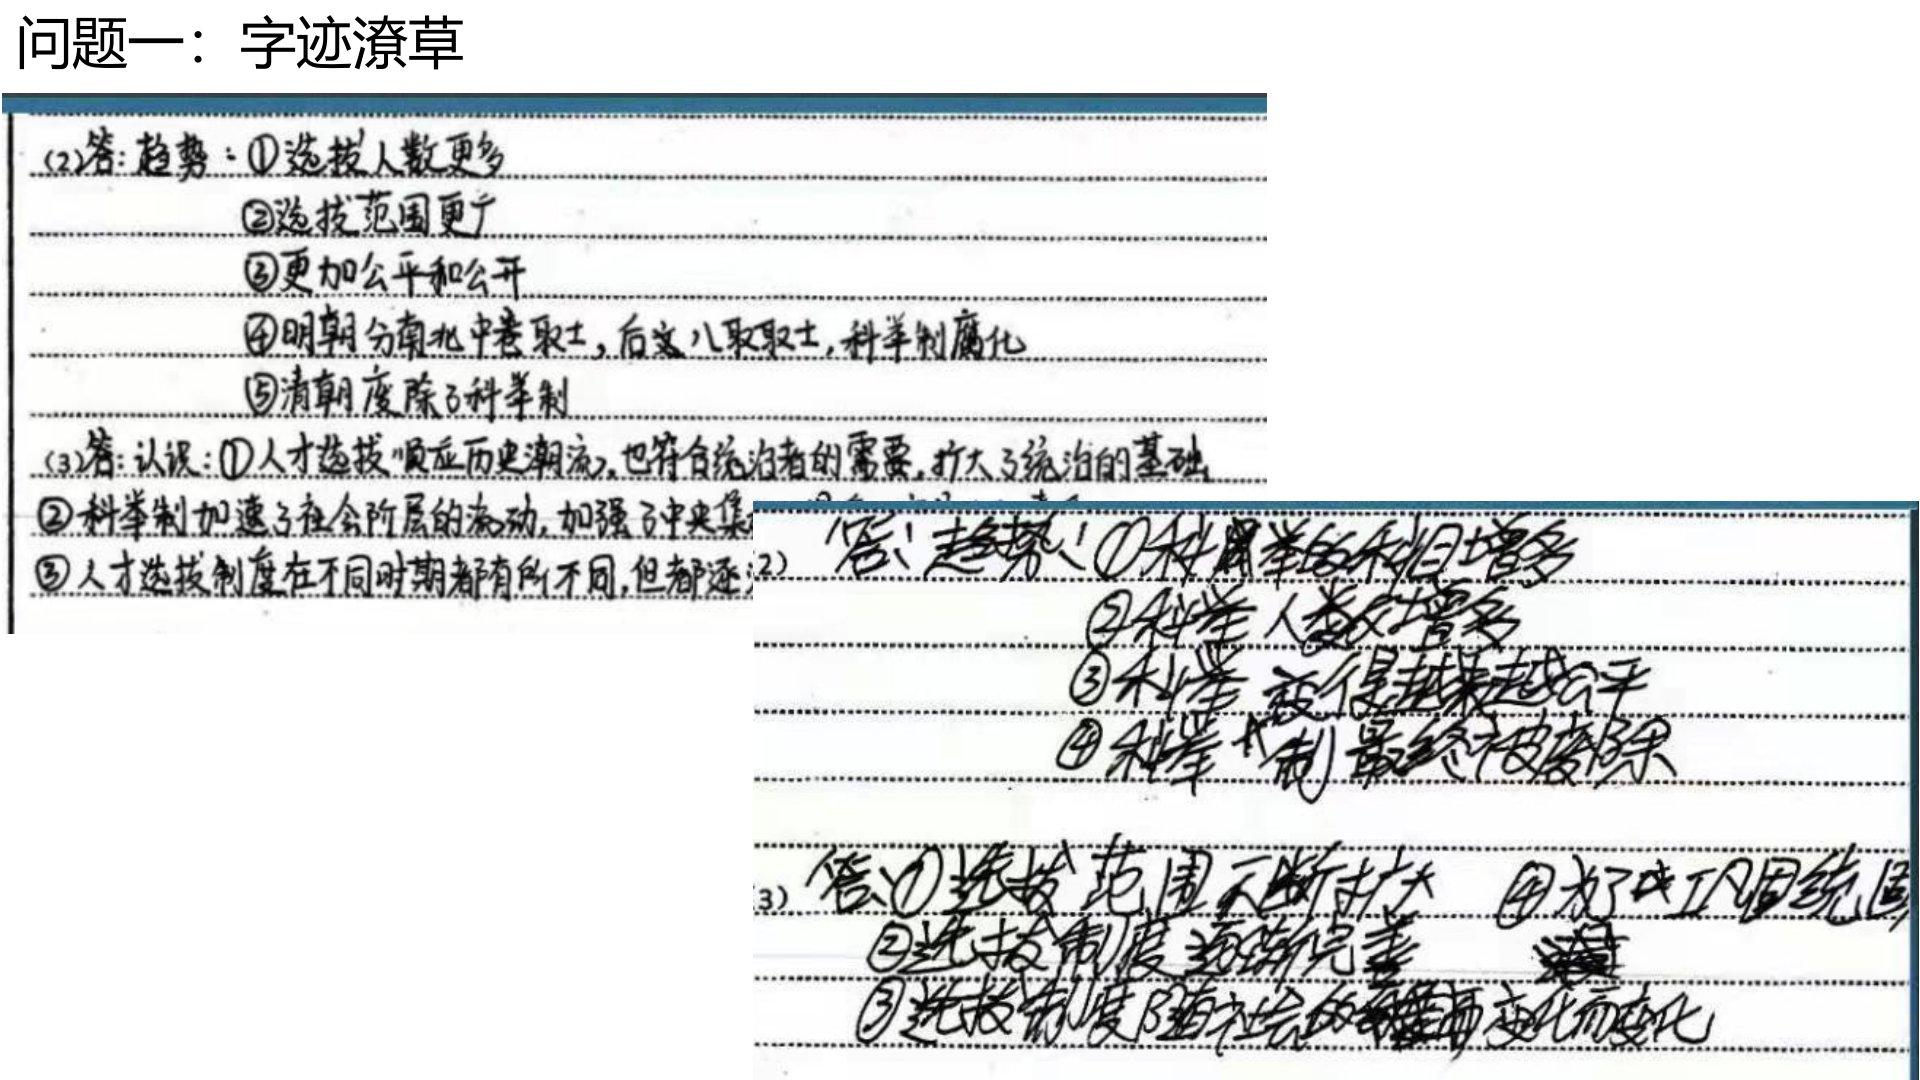 问题一：字迹潦草
(2)答：趋势：①选拔人数更多
②选拔范围更广
③更加公平和公开
④明朝分南北中卷取士，后文八取取士，科举制腐化
⑤清朝废除了科举制
(3)答：认识：①人才选拔顺应历史潮流，也符合统治者的需要，扩大了统治的基础
②科举制加速了社会阶层的流动，加强了中央集
③人才选拔制度在不同时期都有所不同，但都逐
2) 答：趋势：①科举的科目增多
②科举人数增多
③科举变得越来越公平
④科举制最终被废除
3) 答：①选拔范围不断扩大 ④为了巩固统
②选拔制度逐渐完善
③选拔制度随社会的变化而变化